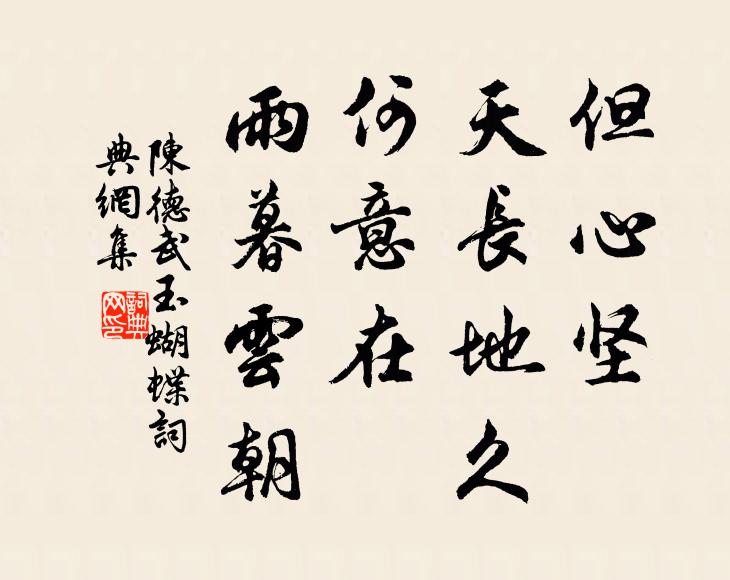 但心坚
天長地久
何意在
雨暮雲朝
陳德武玉蝴蝶詞
典網集
詞典网印